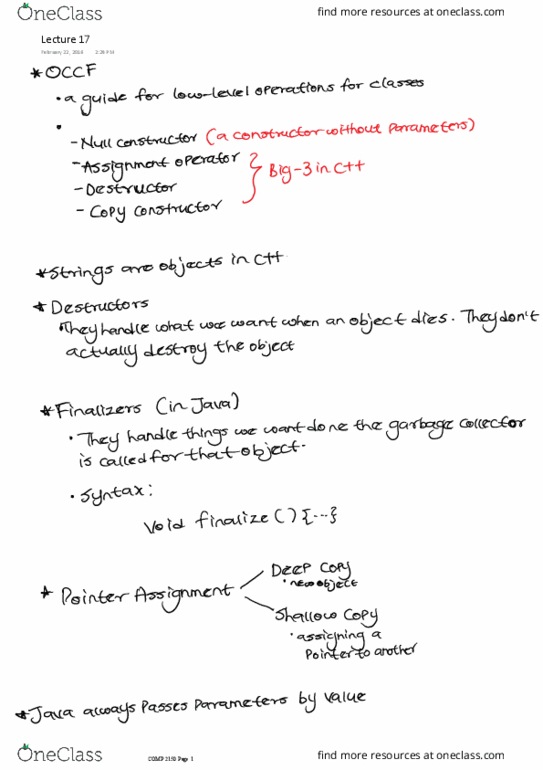 OneClass
find more resources at oneclass.com
Lecture 17
2:29 PM
* OCCF
• a guide for low-level operations for classes
•
- Null constructor (a constructor without parameters)
- Assignment operator
- Destructor
- Copy constructor
Big-3 in C++
* Strings are objects in C++
* Destructors
• They handle what we want when an object dies. They don't
actually destroy the object
* Finalizers (in Java)
• They handle things we want done the garbage collector
is called for that object.
• Syntax:
void finalize() {...}
* Pointer Assignment
Deep Copy
• new object
Shallow Copy
• assigning a
pointer to another
* Java always passes parameters by value
OneClass
COMP 2150 Page 1
find more resources at oneclass.com